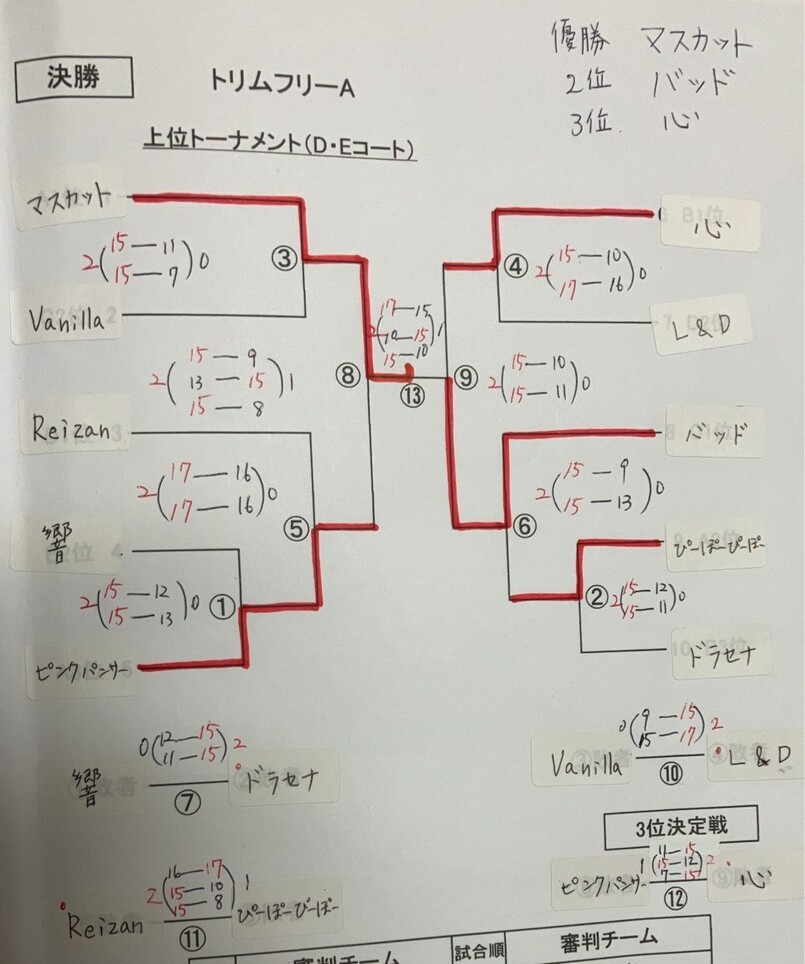 優勝 マスカット
2位 バッド
3位 心
決勝
トリムフリーA
上位トーナメント(D・Eコート)
マスカット
2(15—11 15—7)0
③
Vanilla
2(15—9 13—15 15—8)1
⑧
Reizan
2(17—16 17—16)0
⑤
響
2(15—12 15—13)0
①
ピンクパンサー
2(17—15 10—15 15—10)1
⑬
心
④
2(15—10 17—16)0
L&D
⑨
2(15—10 15—11)0
バッド
2(15—9 15—13)0
⑥
ぴーぽーぴーぽー
②
2(15—12 15—11)0
ドラセナ
響 0(12—15 11—15)2 ドラセナ
⑦
Vanilla 0(9—15 15—17)2 L&D
⑩
3位決定戦
ピンクパンサー 1(11—15 15—12 7—15)2 心
⑫
Reizan 2(16—17 15—10 15—8)1 ぴーぽーぴーぽー
⑪
審判チーム
試合順
審判チーム